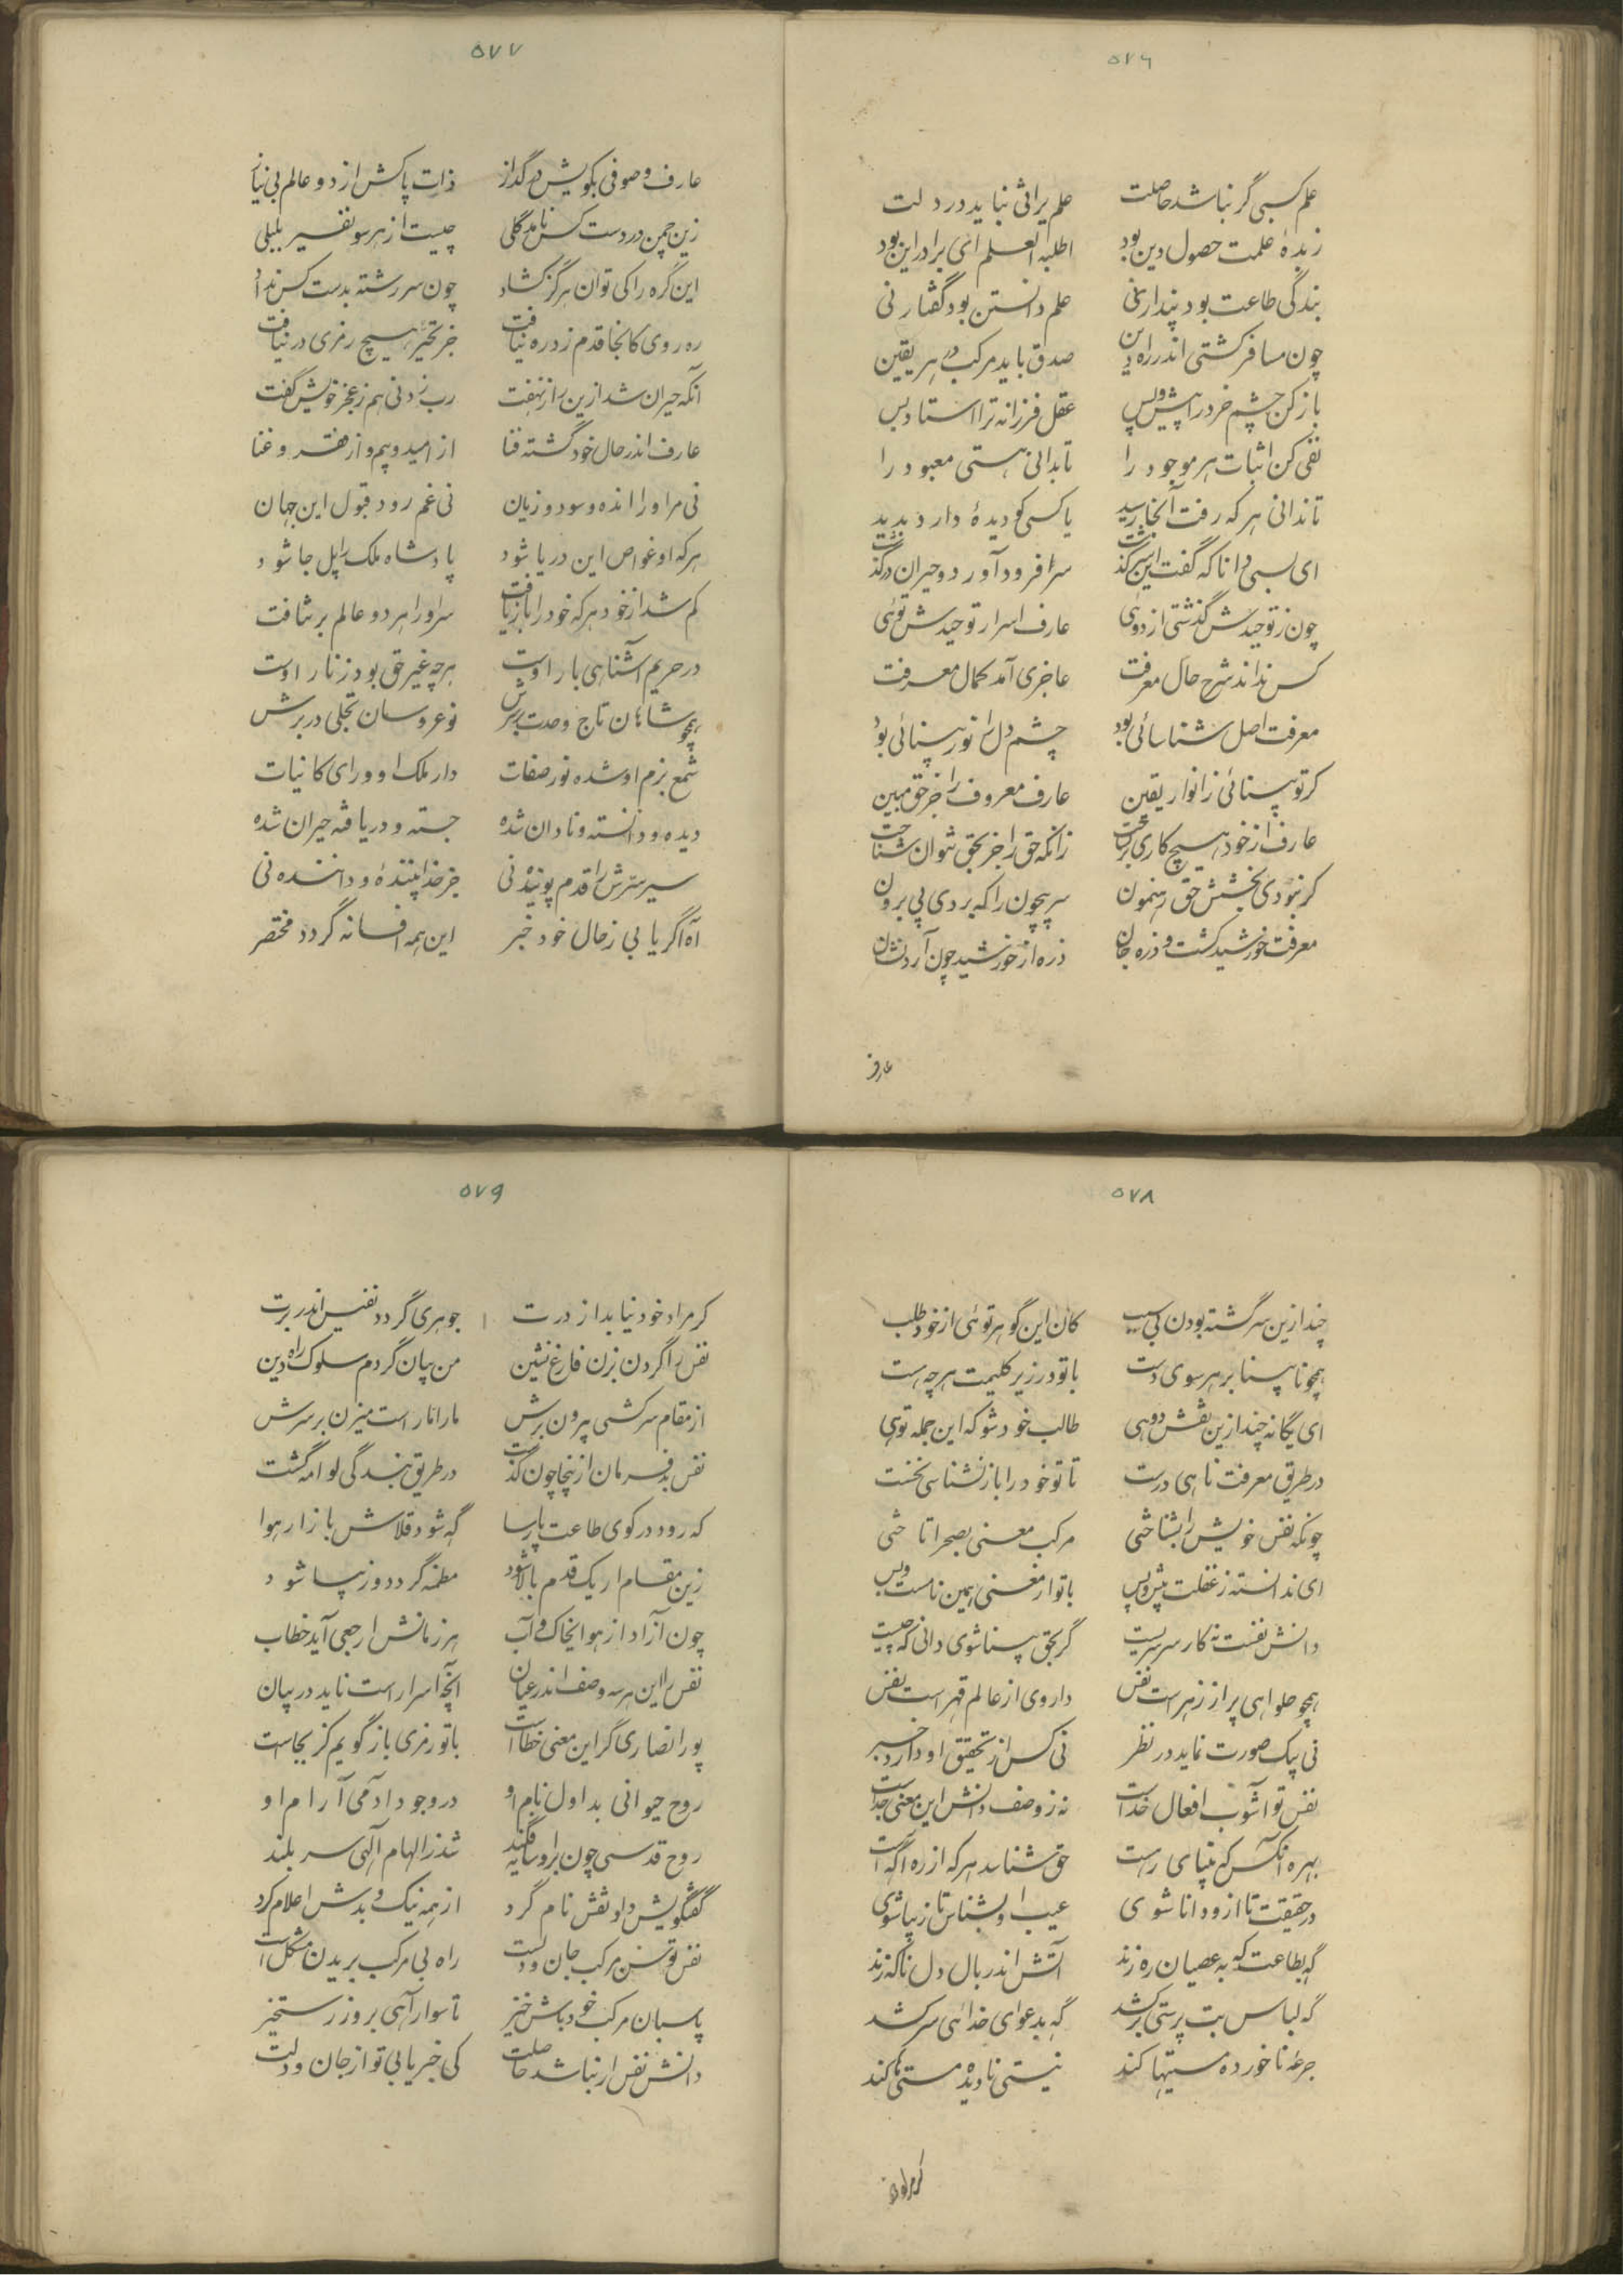 ۵۷۶
علم کسبی گر نباشد حاصلت علم میراثی نیاید در دلت
زبدهٔ علمت حصول دین بود اطلبوا العلم ای برادر این بود
بندگی طاعت بود پندار نی علم دانستن بود گفتار نی
چون مسافر گشتی اندر راه دین صدق باید مرکب و هبر یقین
باز کن چشم خرد را پیش و پس عقل فرزانه ترا استاد و بس
نفی کن اثبات هر موجود را تا بدانی هستی معبود را
تا ندانی هر که رفت آنجا رسید یا کسی کو دیدهٔ دارد بدید
ای بسی دانا که گفت این سرگذشت سر فرود آورد و حیران درگذشت
چون ز توحیدش گذشتی از دوئی عارف اسرار توحیدش توئی
کس نداند شرح حال معرفت عاجزی آمد کمال معرفت
معرفت اصل شناسائی بود چشم دل را نور بینائی بود
گر تو بینائی ز انوار یقین عارف معروف را جز حق مبین
عارف از خود هیچ کاری بر نساخت زانکه حق را جز بحق نتوان شناخت
گر نبودی بخشش حق رهنمون سر بیچون را که بردی پی برون
معرفت خورشید گشت و ذره جان ذره از خورشید چون آرد نشان
عارف
۵۷۷
عارف و صوفی بکویش در گداز ذات پاکش از دو عالم بی نیاز
زین چمن در دست کس نامد گلی چیست از هر سو نفیر بلبلی
این گره را کی توان هرگز گشاد چون سر رشته بدست کس نداد
ره روی کانجا قدم زد ره نیافت جز تحیر هیچ رمزی در نیافت
آنکه حیران شد ازین راز نهفت رب زدنی هم ز عجز خویش گفت
عارف اندر حال خود گشته فنا از امید و بیم و از فقر و غنا
نی مر او را انده و سود و زیان نی غم رد و قبول این جهان
هر که او غواص این دریا شود پادشاه ملک را پل جا شود
گم شد از خود هر که خود را باز یافت سر او را هر دو عالم بر نتافت
در حریم آشناهی بار اوست هر چه غیر حق بود زنار اوست
همچو شاهان تاج وحدت بر سرش نو عروسان تجلی در برش
شمع بزم او شده نور صفات دار ملک او ورای کاینات
دیده و دانسته و نادان شده جسته و دریافته حیران شده
سیر سرش را قدم پوینده نی جز خدا بیننده و داننده نی
آه اگر یابی ز حال خود خبر این همه افسانه گردد مختصر
۵۷۸
چند ازین سرگشته بودن بی سبب کان این گوهر توئی از خود طلب
همچو نابینا بر هر سوی دست با تو در زیر گلیمت هر چه هست
ای یگانه چند ازین نقش دوهی طالب خود شو که این جمله توهی
در طریق معرفت ناهی درست تا تو خود را باز نشناسی نخست
چونکه نفس خویش را بشناختی مرکب معنی بصحرا تاختی
ای ندانسته ز غفلت پیش و پس با تو از معنی همین نامست و بس
دانش نفست نه کار سرسریست گر بحق بینا شوی دانی که چیست
همچو حلواهی پر از زهر است نفس داروی از عالم قهر است نفس
نی بیک صورت نماید در نظر نی کس از تحقیق او دارد خبر
نفس تو آشوب افعال خداست نه ز وصف دانش این معنی جداست
بهره آنکس که بینای رهست حق شناسد هر که از ره آگه است
در حقیقت تا ازو دانا شوی عیب او بشناس تا زیبا شوی
گه بطاعت گه به عصیان ره زند آتش اندر بال دل ناگه زند
گه لباس بت پرستی بر کشد گه بدعوای خداهی سر کشد
جرعه ناخورده مستیها کند نیستی نادیده مستی ها کند
گر مراد خود
۵۷۹
گر مراد خود نیابد از درت جوهری گردد نفیس اندر برت
نفس را گردن بزن فارغ نشین من بیان کردم سلوک راه دین
از مقام سرکشی بیرون برش مار اماره است میزن بر سرش
نفس بد فرمان ازینجا چون گذشت در طریق بندگی لوامه گشت
گه رود در کوی طاعت پارسا گه شود قلاش بازار هوا
زین مقام ار یک قدم بالا شود مطمنه گردد و زیبا شود
چون آزاد از هوا اینجاک و آب هر زمانش ارجعی آید خطاب
نفس را این هر سه وصف اندر عیان آنچه اسرار است ناید در بیان
پور انصاری گر این معنی خطا است با تو رمزی باز گویم کز بجاست
روح حیوانی بد اول نام او در وجود آدمی آرام او
روح قدسی چون بر او سایه فکند شد ز الهام آلهی سر بلند
گفتگویش داد و نقش نام کرد از همه نیک و بدش اعلام کرد
نفس توسن مرکب جان و دلست راه بی مرکب بریدن مشکل است
پاسبان مرکب خود باش خیز تا سوار آهی بروز رستخیز
دانش نفس ار نباشد حاصلت کی خبر یابی تو از جان و دلت